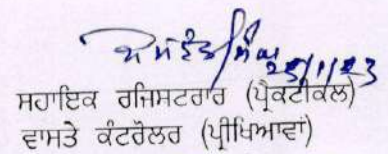 25/1/23
ਸਹਾਇਕ ਰਜਿਸਟਰਾਰ (ਪ੍ਰੈਕਟੀਕਲ)
ਵਾਸਤੇ ਕੰਟਰੋਲਰ (ਪ੍ਰੀਖਿਆਵਾਂ)